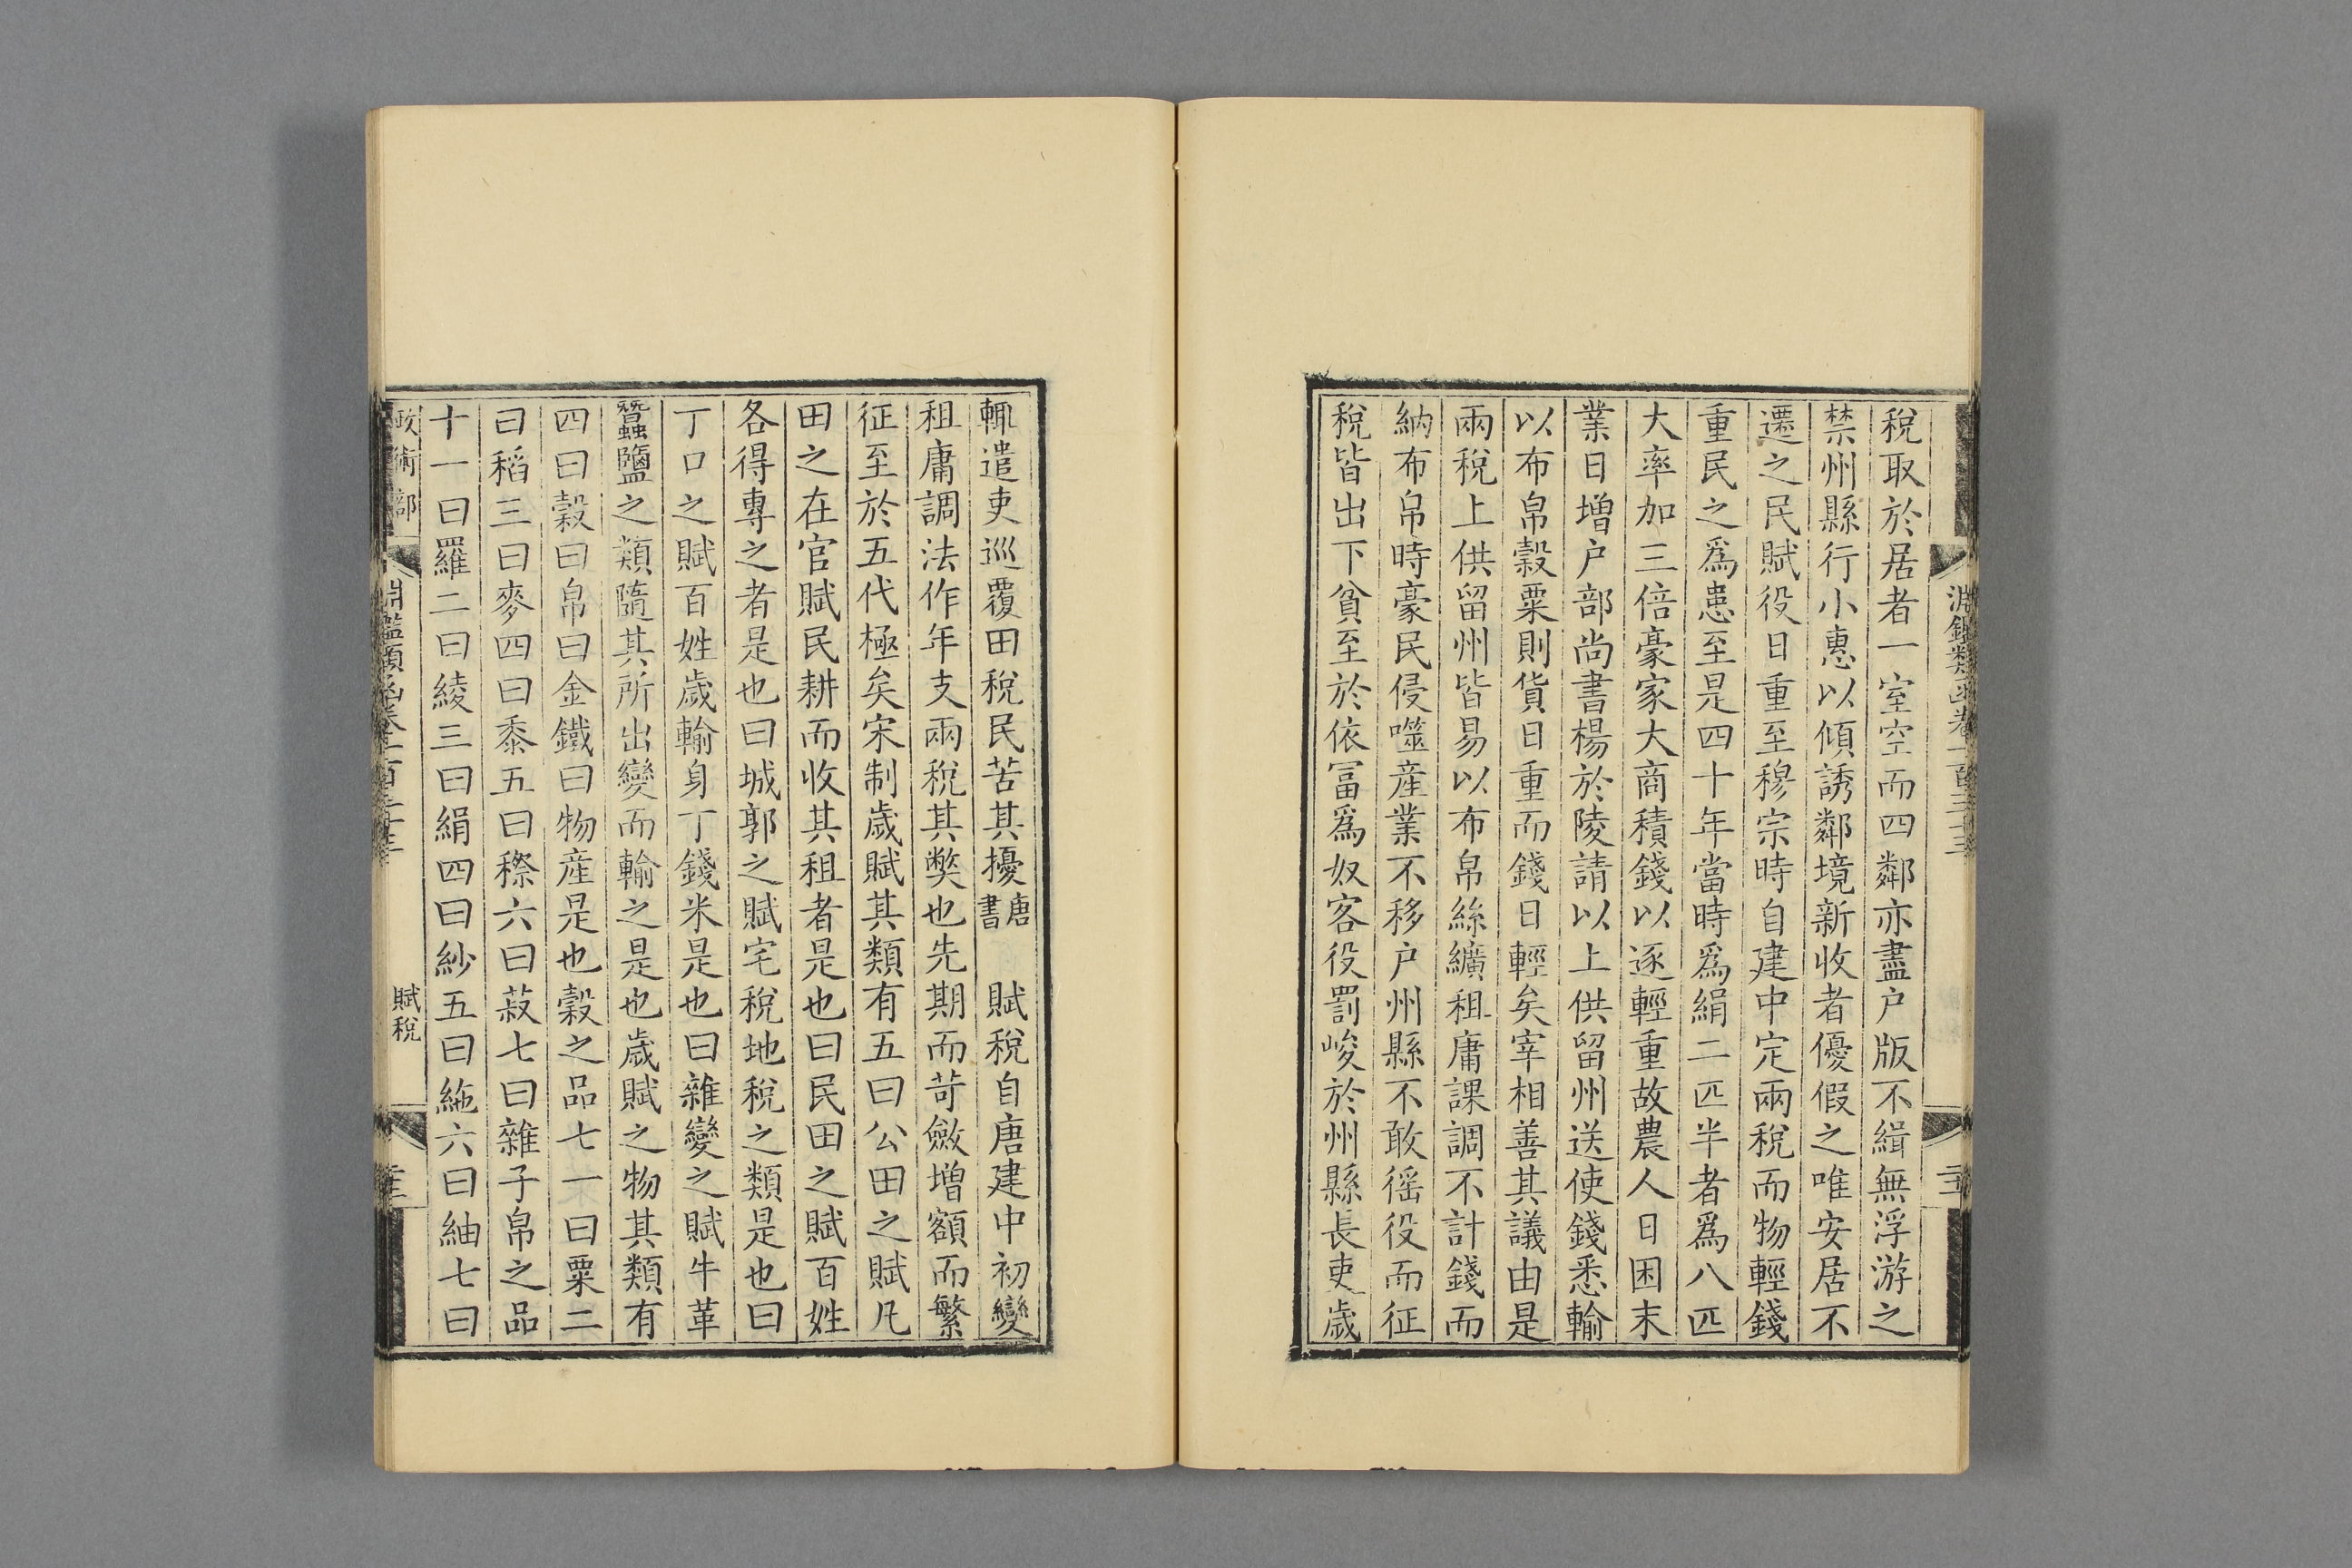 稅取於居者一室空而四鄰亦盡户版不緝無浮游之
禁州縣行小惠以傾誘鄰境新收者優假之唯安居不
遷之民賦役日重至穆宗時自建中定兩稅而物輕錢
重民之爲患至是四十年當時爲絹二匹半者爲八匹
大率加三倍豪家大商積錢以逐輕重故農人日困末
業日增户部尚書楊於陵請以上供留州送使錢悉輸
以布帛穀粟則貨日重而錢日輕矣宰相善其議由是
兩稅上供留州皆易以布帛絲纊租庸課調不計錢而
納布帛時豪民侵噬産業不移户州縣不敢徭役而征
稅皆出下貧至於依冨爲奴客役罰峻於州縣長吏歲
輒遣吏巡覆田稅民苦其擾唐書 賦稅自唐建中初變
租庸調法作年支兩稅其弊也先期而苛斂增額而繁
征至於五代極矣宋制歲賦其類有五曰公田之賦凡
田之在官賦民耕而收其租者是也曰民田之賦百姓
各得專之者是也曰城郭之賦宅稅地稅之類是也曰
丁口之賦百姓歲輸身丁錢米是也曰雜變之賦牛革
蠶鹽之類隨其所出變而輸之是也歲賦之物其類有
四曰穀曰帛曰金鐵曰物産是也穀之品七一曰粟二
曰稻三曰麥四曰黍五曰穄六曰菽七曰雜子帛之品
十一曰羅二曰綾三曰絹四曰紗五曰絁六曰紬七曰
政術部
賦稅